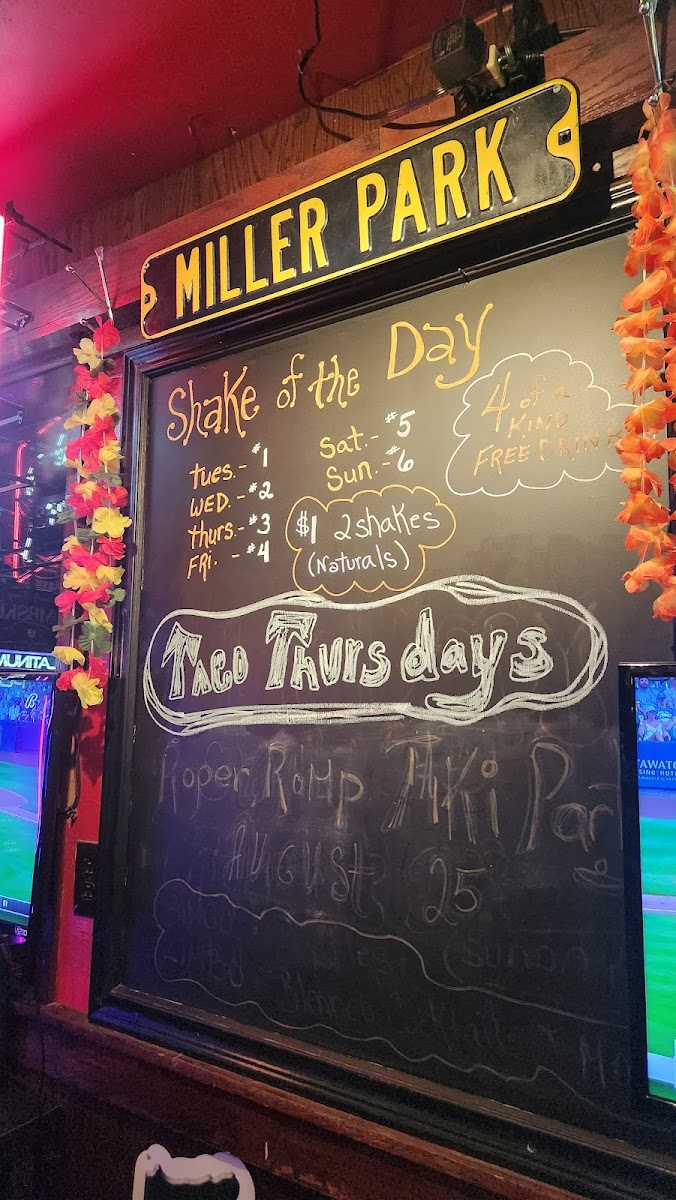 MILLER PARK
Shake of the Day
tues.- #1
WED. - #2
thurs.- #3
FRI. - #4
Sat. - #5
Sun. - #6
4 of a
KIND
FREE DRINK
$1 2 shakes
(Naturals)
Taco Thursdays
Roper Romp Tiki Par
AUGUSt 25